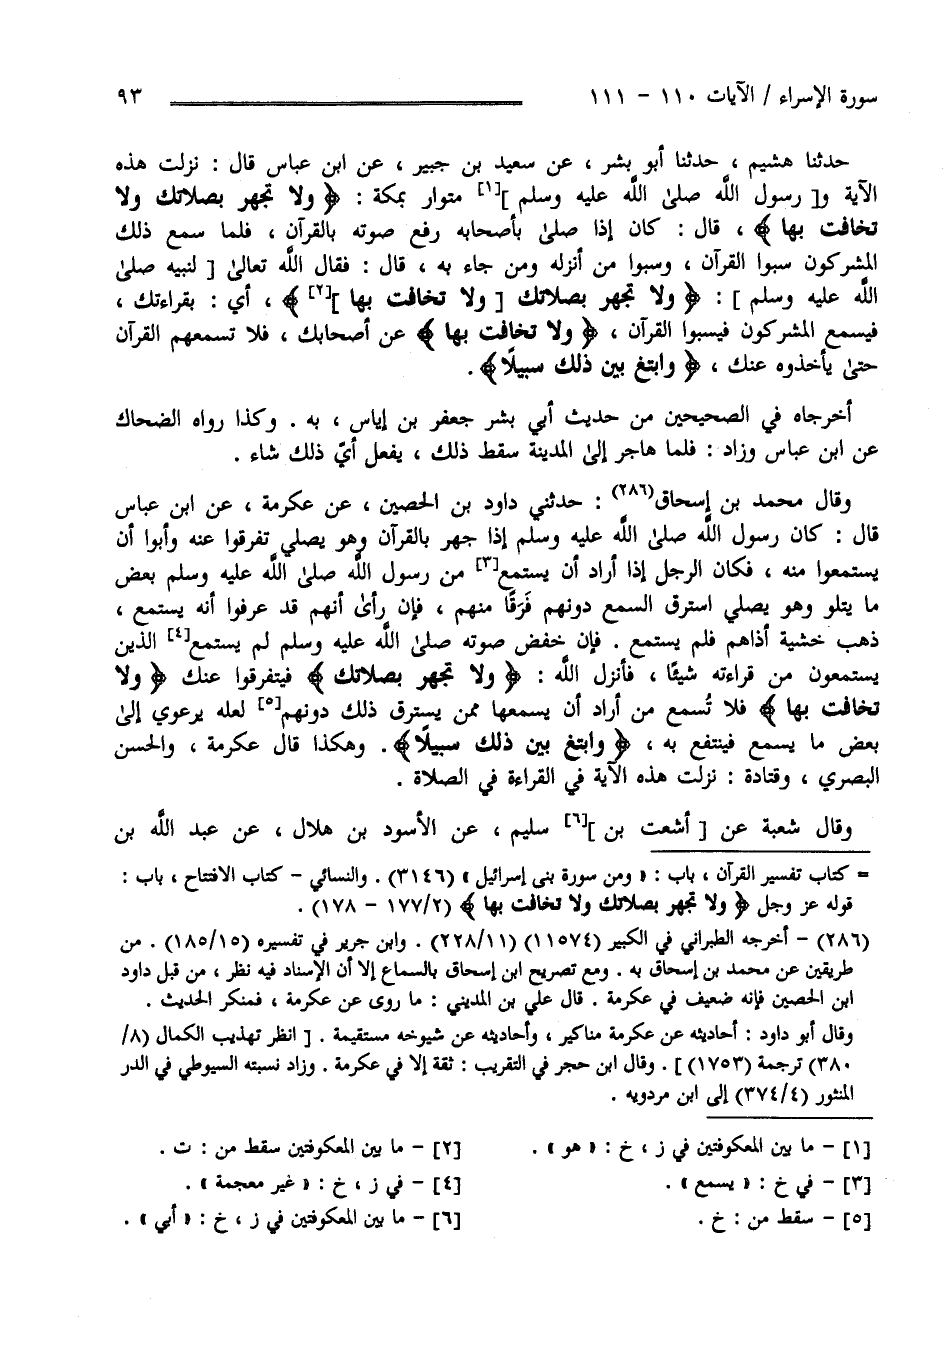 سورة الإسراء / الآيات ١١٠ - ١١١ ٩٣
حدثنا هشيم ، حدثنا أبو بشر ، عن سعيد بن جبير ، عن ابن عباس قال : نزلت هذه
الآية و[ رسول اللَّه صلى اللَّه عليه وسلم ][١] متوار بمكة : ﴿ ولا تجهر بصلاتك ولا
تخافت بها ﴾ ، قال : كان إذا صلى بأصحابه رفع صوته بالقرآن ، فلما سمع ذلك
المشركون سبوا القرآن ، وسبوا من أنزله ومن جاء به ، قال : فقال اللَّه تعالى [ لنبيه صلى
اللَّه عليه وسلم ] : ﴿ ولا تجهر بصلاتك [ ولا تخافت بها ][٢] ﴾ ، أي : بقراءتك ،
فيسمع المشركون فيسبوا القرآن ، ﴿ ولا تخافت بها ﴾ عن أصحابك ، فلا تسمعهم القرآن
حتى يأخذوه عنك ، ﴿ وابتغ بين ذلك سبيلًا﴾ .
أخرجاه في الصحيحين من حديث أبي بشر جعفر بن إياس ، به . وكذا رواه الضحاك
عن ابن عباس وزاد : فلما هاجر إلى المدينة سقط ذلك ، يفعل أيّ ذلك شاء .
وقال محمد بن إسحاق(٢٨٦) : حدثني داود بن الحصين ، عن عكرمة ، عن ابن عباس
قال : كان رسول اللَّه صلى اللَّه عليه وسلم إذا جهر بالقرآن وهو يصلي تفرقوا عنه وأبوا أن
يستمعوا منه ، فكان الرجل إذا أراد أن يستمع[٣] من رسول اللَّه صلى اللَّه عليه وسلم بعض
ما يتلو وهو يصلي استرق السمع دونهم فَرَقًا منهم ، فإن رأى أنهم قد عرفوا أنه يستمع ،
ذهب خشية أذاهم فلم يستمع . فإن خفض صوته صلى اللَّه عليه وسلم لم يستمع[٤] الذين
يستمعون من قراءته شيئًا ، فأنزل اللَّه : ﴿ ولا تجهر بصلاتك ﴾ فيتفرقوا عنك ﴿ ولا
تخافت بها ﴾ فلا تُسمع من أراد أن يسمعها ممن يسترق ذلك دونهم[٥] لعله يرعوي إلى
بعض ما يسمع فينتفع به ، ﴿ وابتغ بين ذلك سبيلًا﴾ . وهكذا قال عكرمة ، والحسن
البصري ، وقتادة : نزلت هذه الآية في القراءة في الصلاة .
وقال شعبة عن [ أشعث بن ][٦] سليم ، عن الأسود بن هلال ، عن عبد اللَّه بن
= كتاب تفسير القرآن ، باب : « ومن سورة بنى إسرائيل » (٣١٤٦) . والنسائي - كتاب الافتتاح ، باب :
قوله عز وجل ﴿ ولا تجهر بصلاتك ولا تخافت بها ﴾ (١٧٧/٢ - ١٧٨) .
(٢٨٦) - أخرجه الطبراني في الكبير (١١٥٧٤) (٢٢٨/١١) . وابن جرير في تفسيره (١٨٥/١٥) . من
طريقين عن محمد بن إسحاق به . ومع تصريح ابن إسحاق بالسماع إلا أن الإسناد فيه نظر ، من قبل داود
ابن الحصين فإنه ضعيف في عكرمة . قال علي بن المديني : ما روى عن عكرمة ، فمنكر الحديث .
وقال أبو داود : أحاديثه عن عكرمة مناكير ، وأحاديثه عن شيوخه مستقيمة . [ انظر تهذيب الكمال (٨/
٣٨٠) ترجمة (١٧٥٣) ] . وقال ابن حجر في التقريب : ثقة إلا في عكرمة . وزاد نسبته السيوطي في الدر
المنثور (٣٧٤/٤) إلى ابن مردويه .
[١] - ما بين المعكوفتين في ز ، خ : « هو » . [٢] - ما بين المعكوفتين سقط من : ت .
[٣] - في خ : « يسمع » . [٤] - في ز ، خ : « غير معجمة » .
[٥] - سقط من : خ . [٦] - ما بين المعكوفتين في ز ، خ : « أبي » .